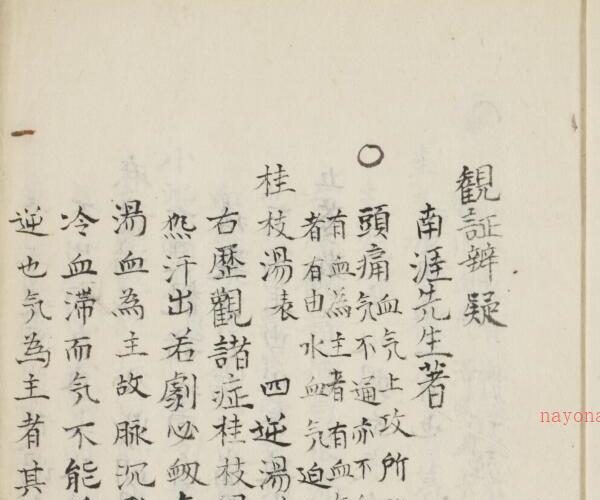 觀証辨疑
南涯先生著
頭痛 血気上攻所
気不通亦不
有血為主者有血
者有由水血気迫
桂枝湯表 四逆湯
右歴觀諸症桂枝
然汗出若劇必衂
湯血為主故脉沉
冷血滞而気不能
逆也気為主者其
nayona